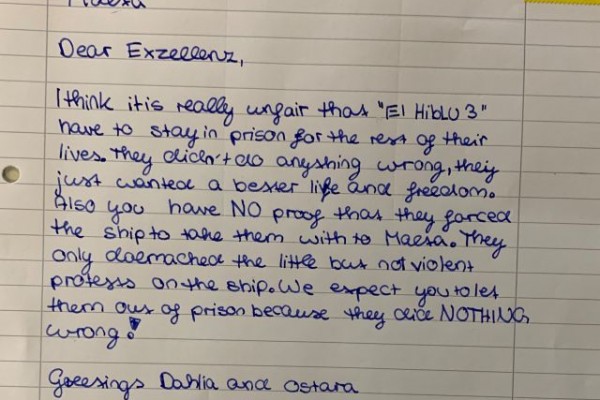 Dear Exzellenz,
I think it is really unfair that "El Hiblu 3"
have to stay in prison for the rest of their
lives. They didn't do anything wrong, they
just wanted a better life and freedom.
Also you have NO proof that they forced
the ship to take them with to Malta. They
only the little but not violent
protests on the ship. We expect you to let
them out of prison because they did NOTHING
wrong!
Greetings Dahlia and Ostara